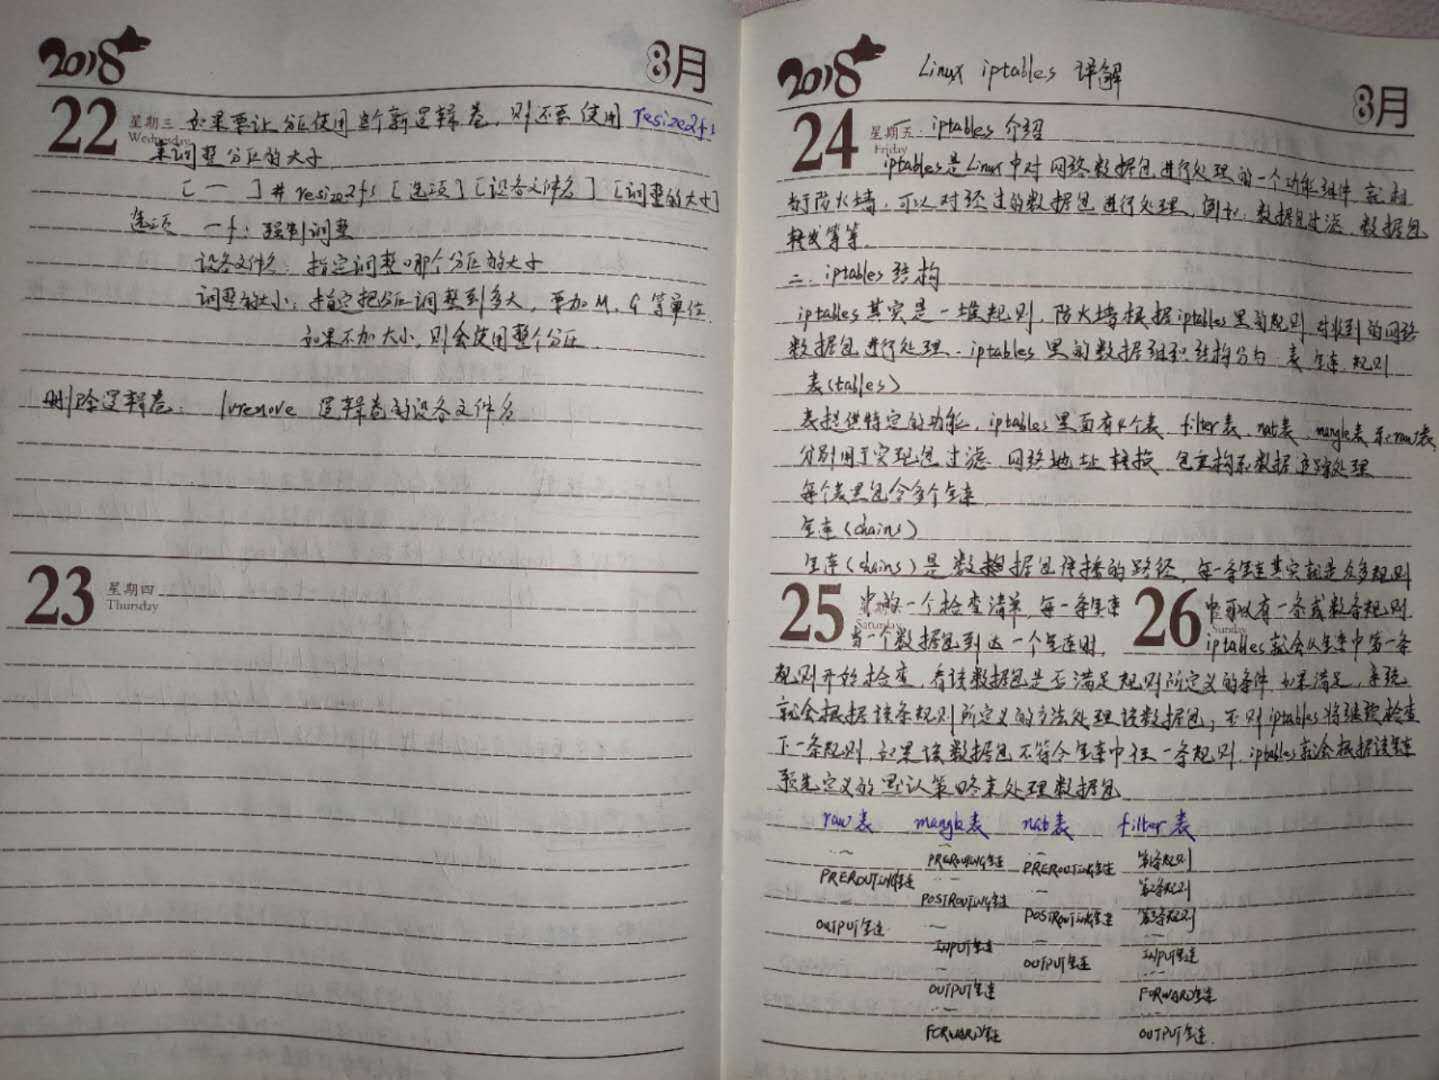 2018
8月
22 星期三 如果要让分区使用这个新逻辑卷，则还要使用resize2fs
Wednesday
来调整分区的大小
[ 一 ]# resize2fs [选项] [设备文件名] [调整的大小]
选项 一f：强制调整
设备文件名：指定调整哪个分区的大小
调整的大小：指定把分区调整到多大，要加M、G等单位.
如果不加大小，则会使用整个分区.
删除逻辑卷： lvremove 逻辑卷的设备文件名
23 星期四
Thursday
2018 Linux iptables 详解
8月
24 星期五 一. iptables 介绍
Friday
iptables是Linux中对网络数据包进行处理的一个功能组件 就相
当于防火墙，可以对经过的数据包进行处理、例如：数据包过滤、数据包
转发等等.
二. iptables结构
iptables其实是一堆规则，防火墙根据iptables里的规则 对收到的网络
数据包进行处理. iptables里的数据组织结构分为：表、链、规则
表(tables)
表提供特定的功能，iptables里面有4个表 filter表、nat表、mangle表和raw表，
分别用于实现包过滤 网络地址转换 包重构和数据追踪处理
每个表里包含多个链
链(chains)
链(chains)是数据包传播的路径，每一条链其实就是众多规则
25 中的一个检查清单，每一条链 26 中可以有一条或数条规则.
Saturday Sunday
当一个数据包到达一个链时， iptables就会从链中第一条
规则开始检查，看该数据包是否满足规则所定义的条件 如果满足，系统
就会根据该条规则所定义的方法处理该数据包；否则iptables将继续检查
下一条规则，如果该数据包不符合链中任一条规则，iptables就会根据该链
预先定义的默认策略来处理数据包
raw表 mangle表 nat表 filter表
PREROUTING链 PREROUTING链 第1条规则
PREROUTING链 POSTROUTING链 第2条规则
POSTROUTING链 第3条规则
OUTPUT链 INPUT链 OUTPUT链 INPUT链
OUTPUT链 FORWARD链
FORWARD链 OUTPUT链